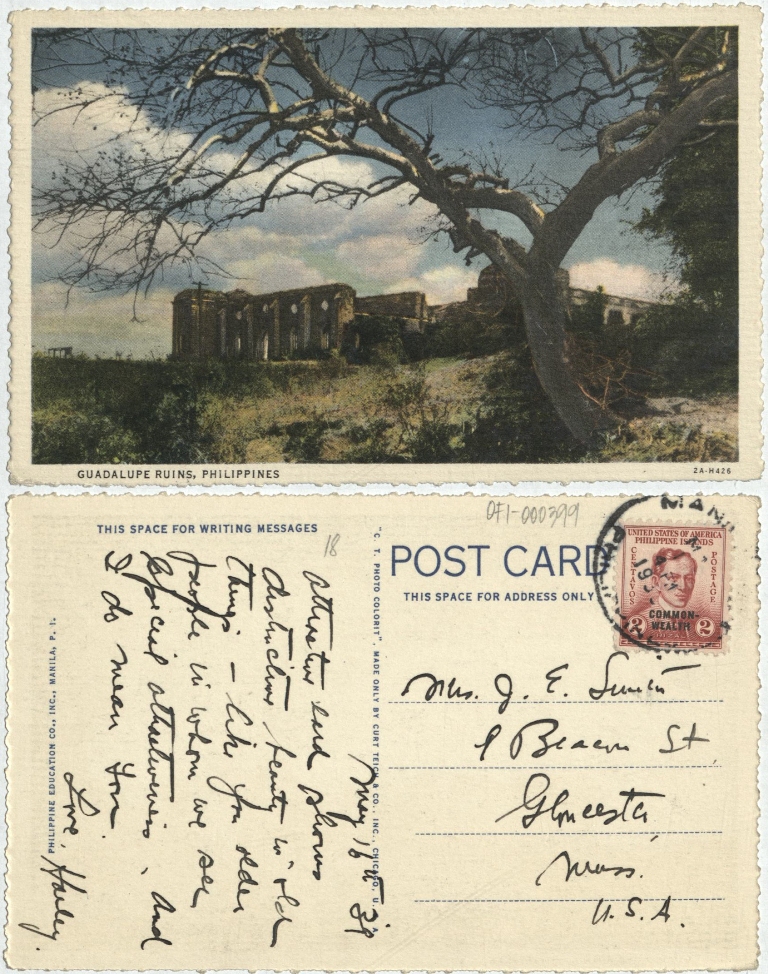 GUADALUPE RUINS, PHILIPPINES
2A-H426
THIS SPACE FOR WRITING MESSAGES
18
0F1-000399
POST CARD
THIS SPACE FOR ADDRESS ONLY
UNITED STATES OF AMERICA
PHILIPPINE ISLANDS
CENTAVOS
POSTAGE
COMMON-
WEALTH
2 2
MANI
"C. T. PHOTO COLORIT". MADE ONLY BY CURT TEICH & CO., INC., CHICAGO, U.
PHILIPPINE EDUCATION CO., INC., MANILA, P. I.
May 16th 39
Attractive card shows
distinctive beauty in old
things – like you older
people in whom we see
special attractiveness, and
I do mean You.
Love, Harley.
Mrs. J. E.
1 Beacon St,
Gloucester,
Mass.
U.S.A.